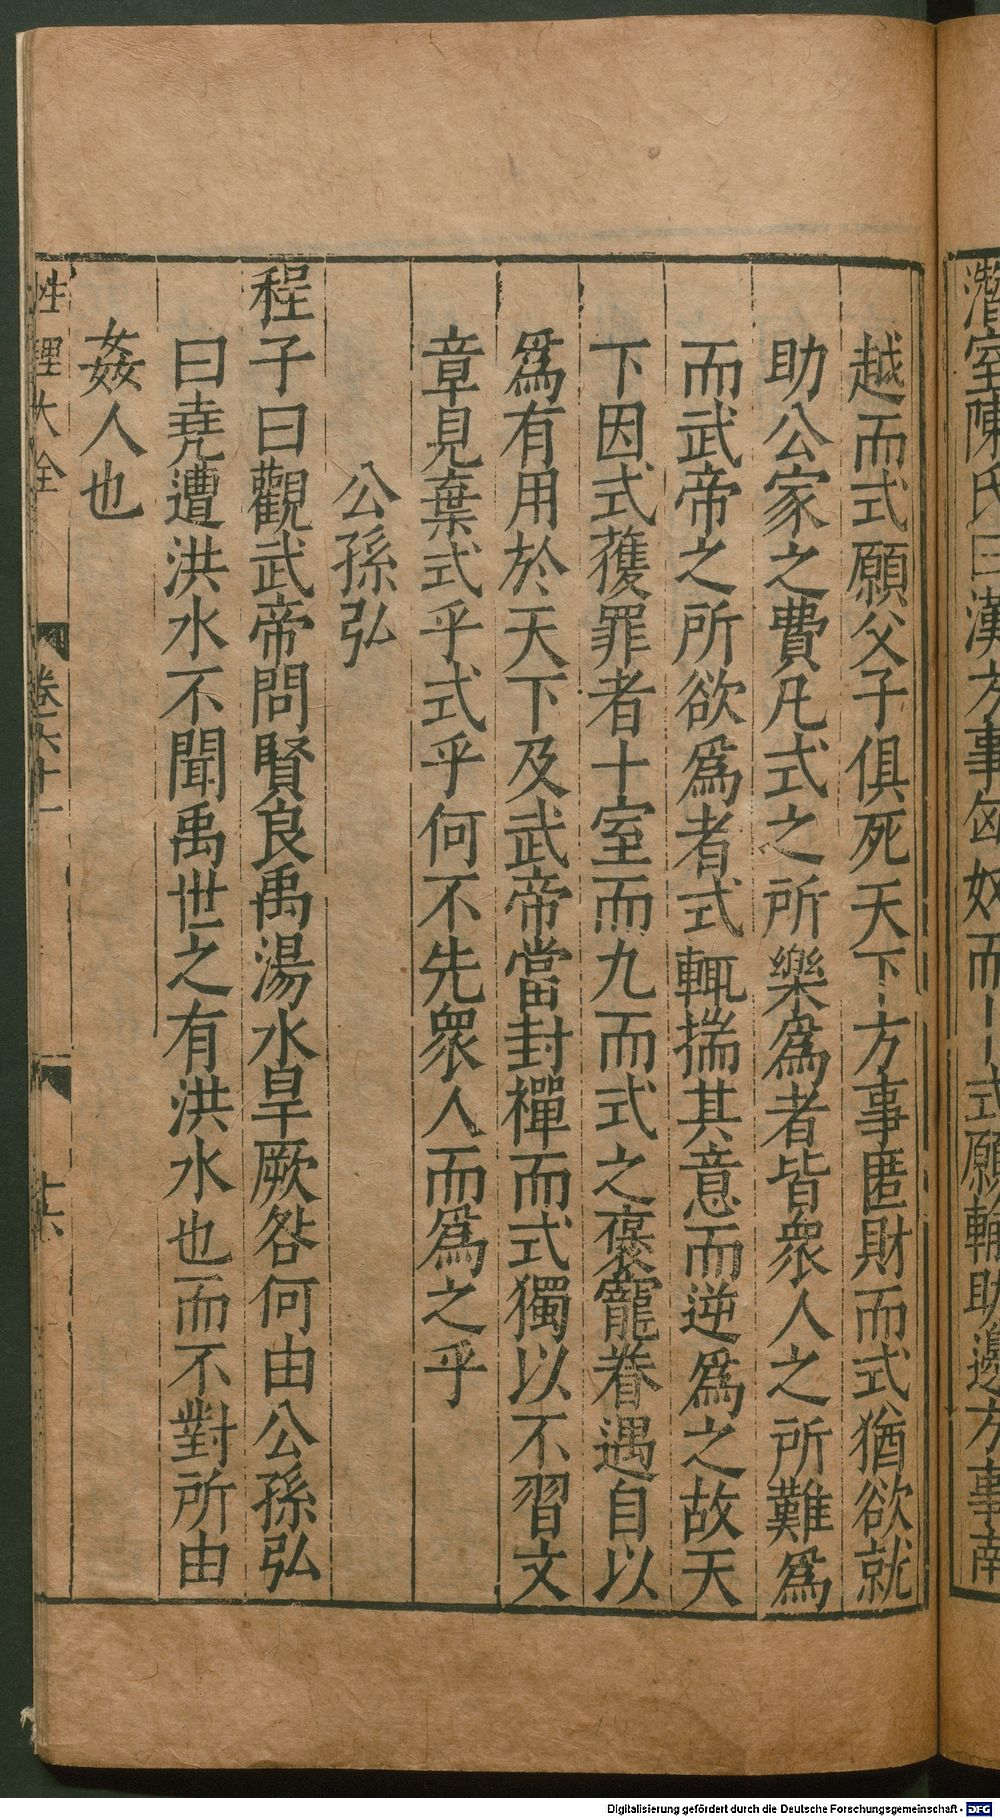 潛室陳氏曰漢方事匈奴而卜式願輸助邊方事南
越而式願父子俱死天下方事匿財而式猶欲就
助公家之費凡式之所樂爲者皆衆人之所難爲
而武帝之所欲爲者式輒揣其意而逆爲之故天
下因式獲罪者十室而九而式之褒寵眷遇自以
爲有用於天下及武帝當封禪而式獨以不習文
章見棄式乎式乎何不先衆人而爲之乎
公孫弘
程子曰觀武帝問賢良禹湯水旱厥咎何由公孫弘
曰堯遭洪水不聞禹世之有洪水也而不對所由
姦人也
性理大全
卷六十一
十六
Digitalisierung gefördert durch die Deutsche Forschungsgemeinschaft - DFG